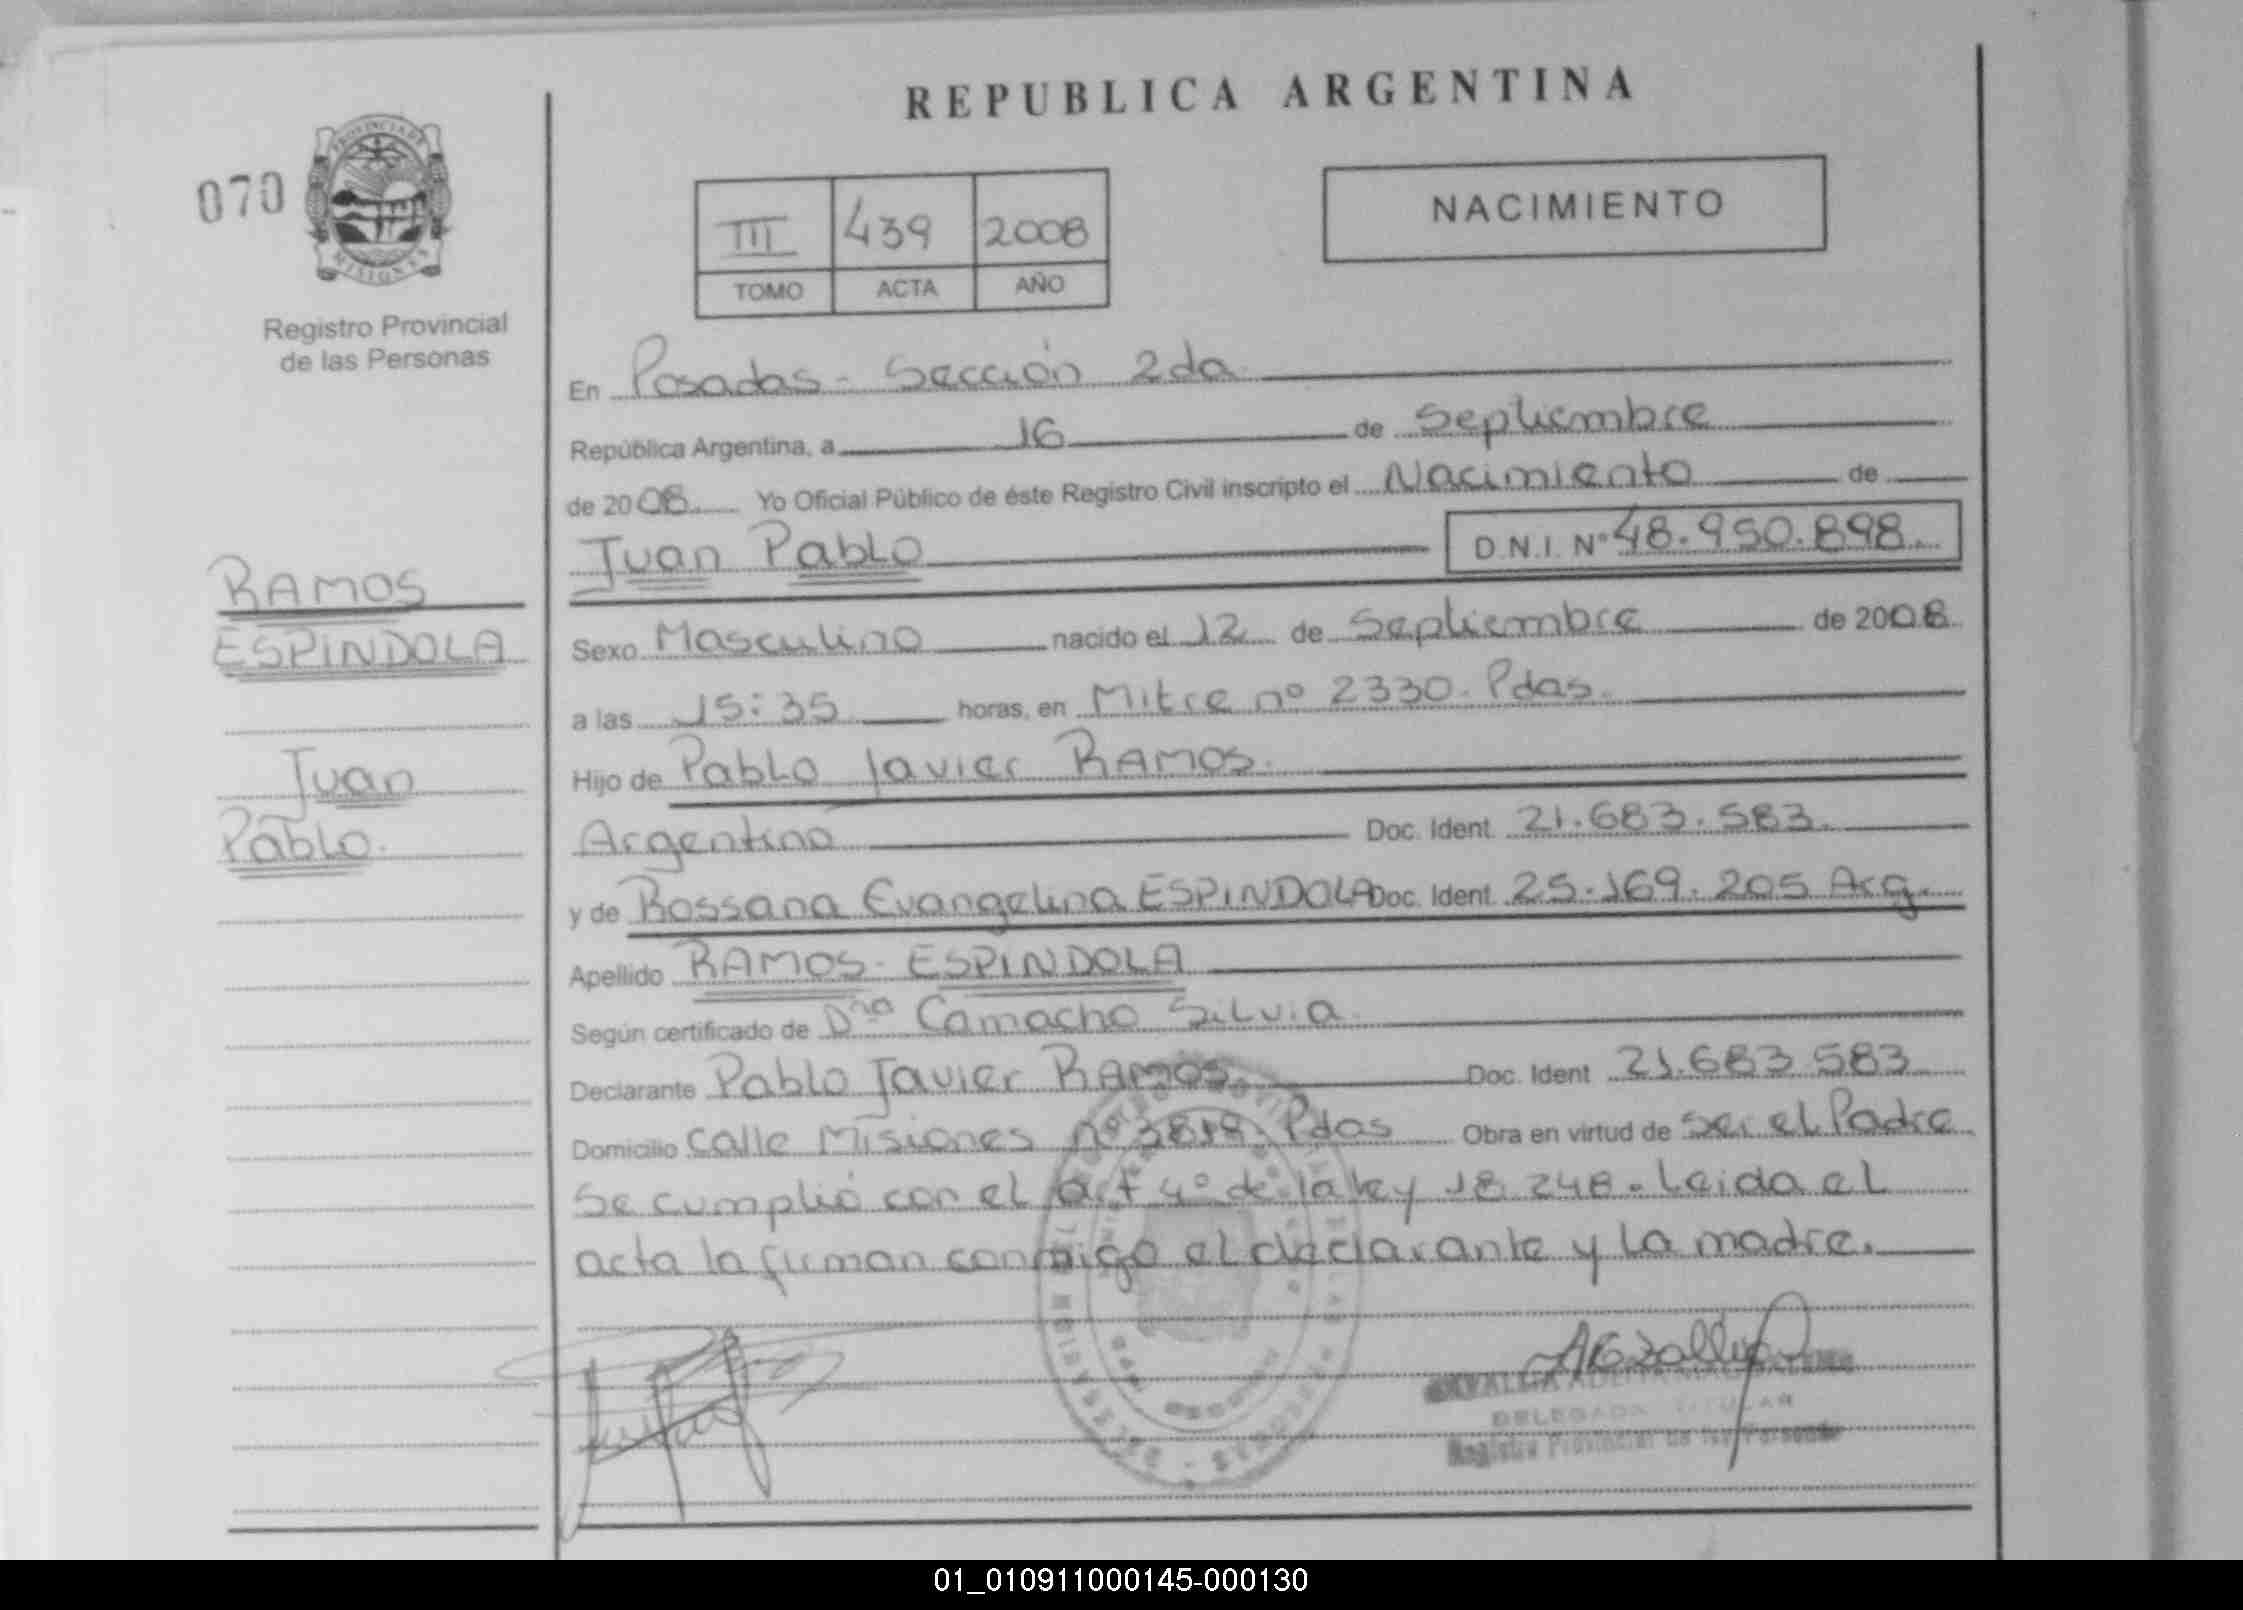 REPUBLICA ARGENTINA
070
PROVINCIA DE
MISIONES
Registro Provincial
de las Personas
III 439 2008
TOMO ACTA AÑO
NACIMIENTO
En Posadas - Sección 2da
República Argentina, a 16 de Septiembre
de 2008 Yo Oficial Público de éste Registro Civil inscripto el Nacimiento de
Juan Pablo D.N.I. Nº 48.950.898.
RAMOS
ESPINDOLA
Juan
Pablo.
Sexo Masculino nacido el 12 de Septiembre de 2008
a las 15:35 horas, en Mitre nº 2330. Pdas.
Hijo de Pablo Javier RAMOS.
Argentino Doc. Ident. 21.683.583.
y de Rossana Evangelina ESPINDOLA Doc. Ident. 25.169.205 Arg.
Apellido RAMOS - ESPINDOLA
Según certificado de Dra Camacho Silvia.
Declarante Pablo Javier RAMOS. Doc. Ident. 21.683.583
Domicilio Calle Misiones nº Pdas Obra en virtud de ser el Padre
Se cumplió con el art 4º de la ley 18.248. Leida el
acta la firman conmigo el declarante y la madre.
DELEGADA TITULAR
Registro Provincial de las Personas
01_010911000145-000130